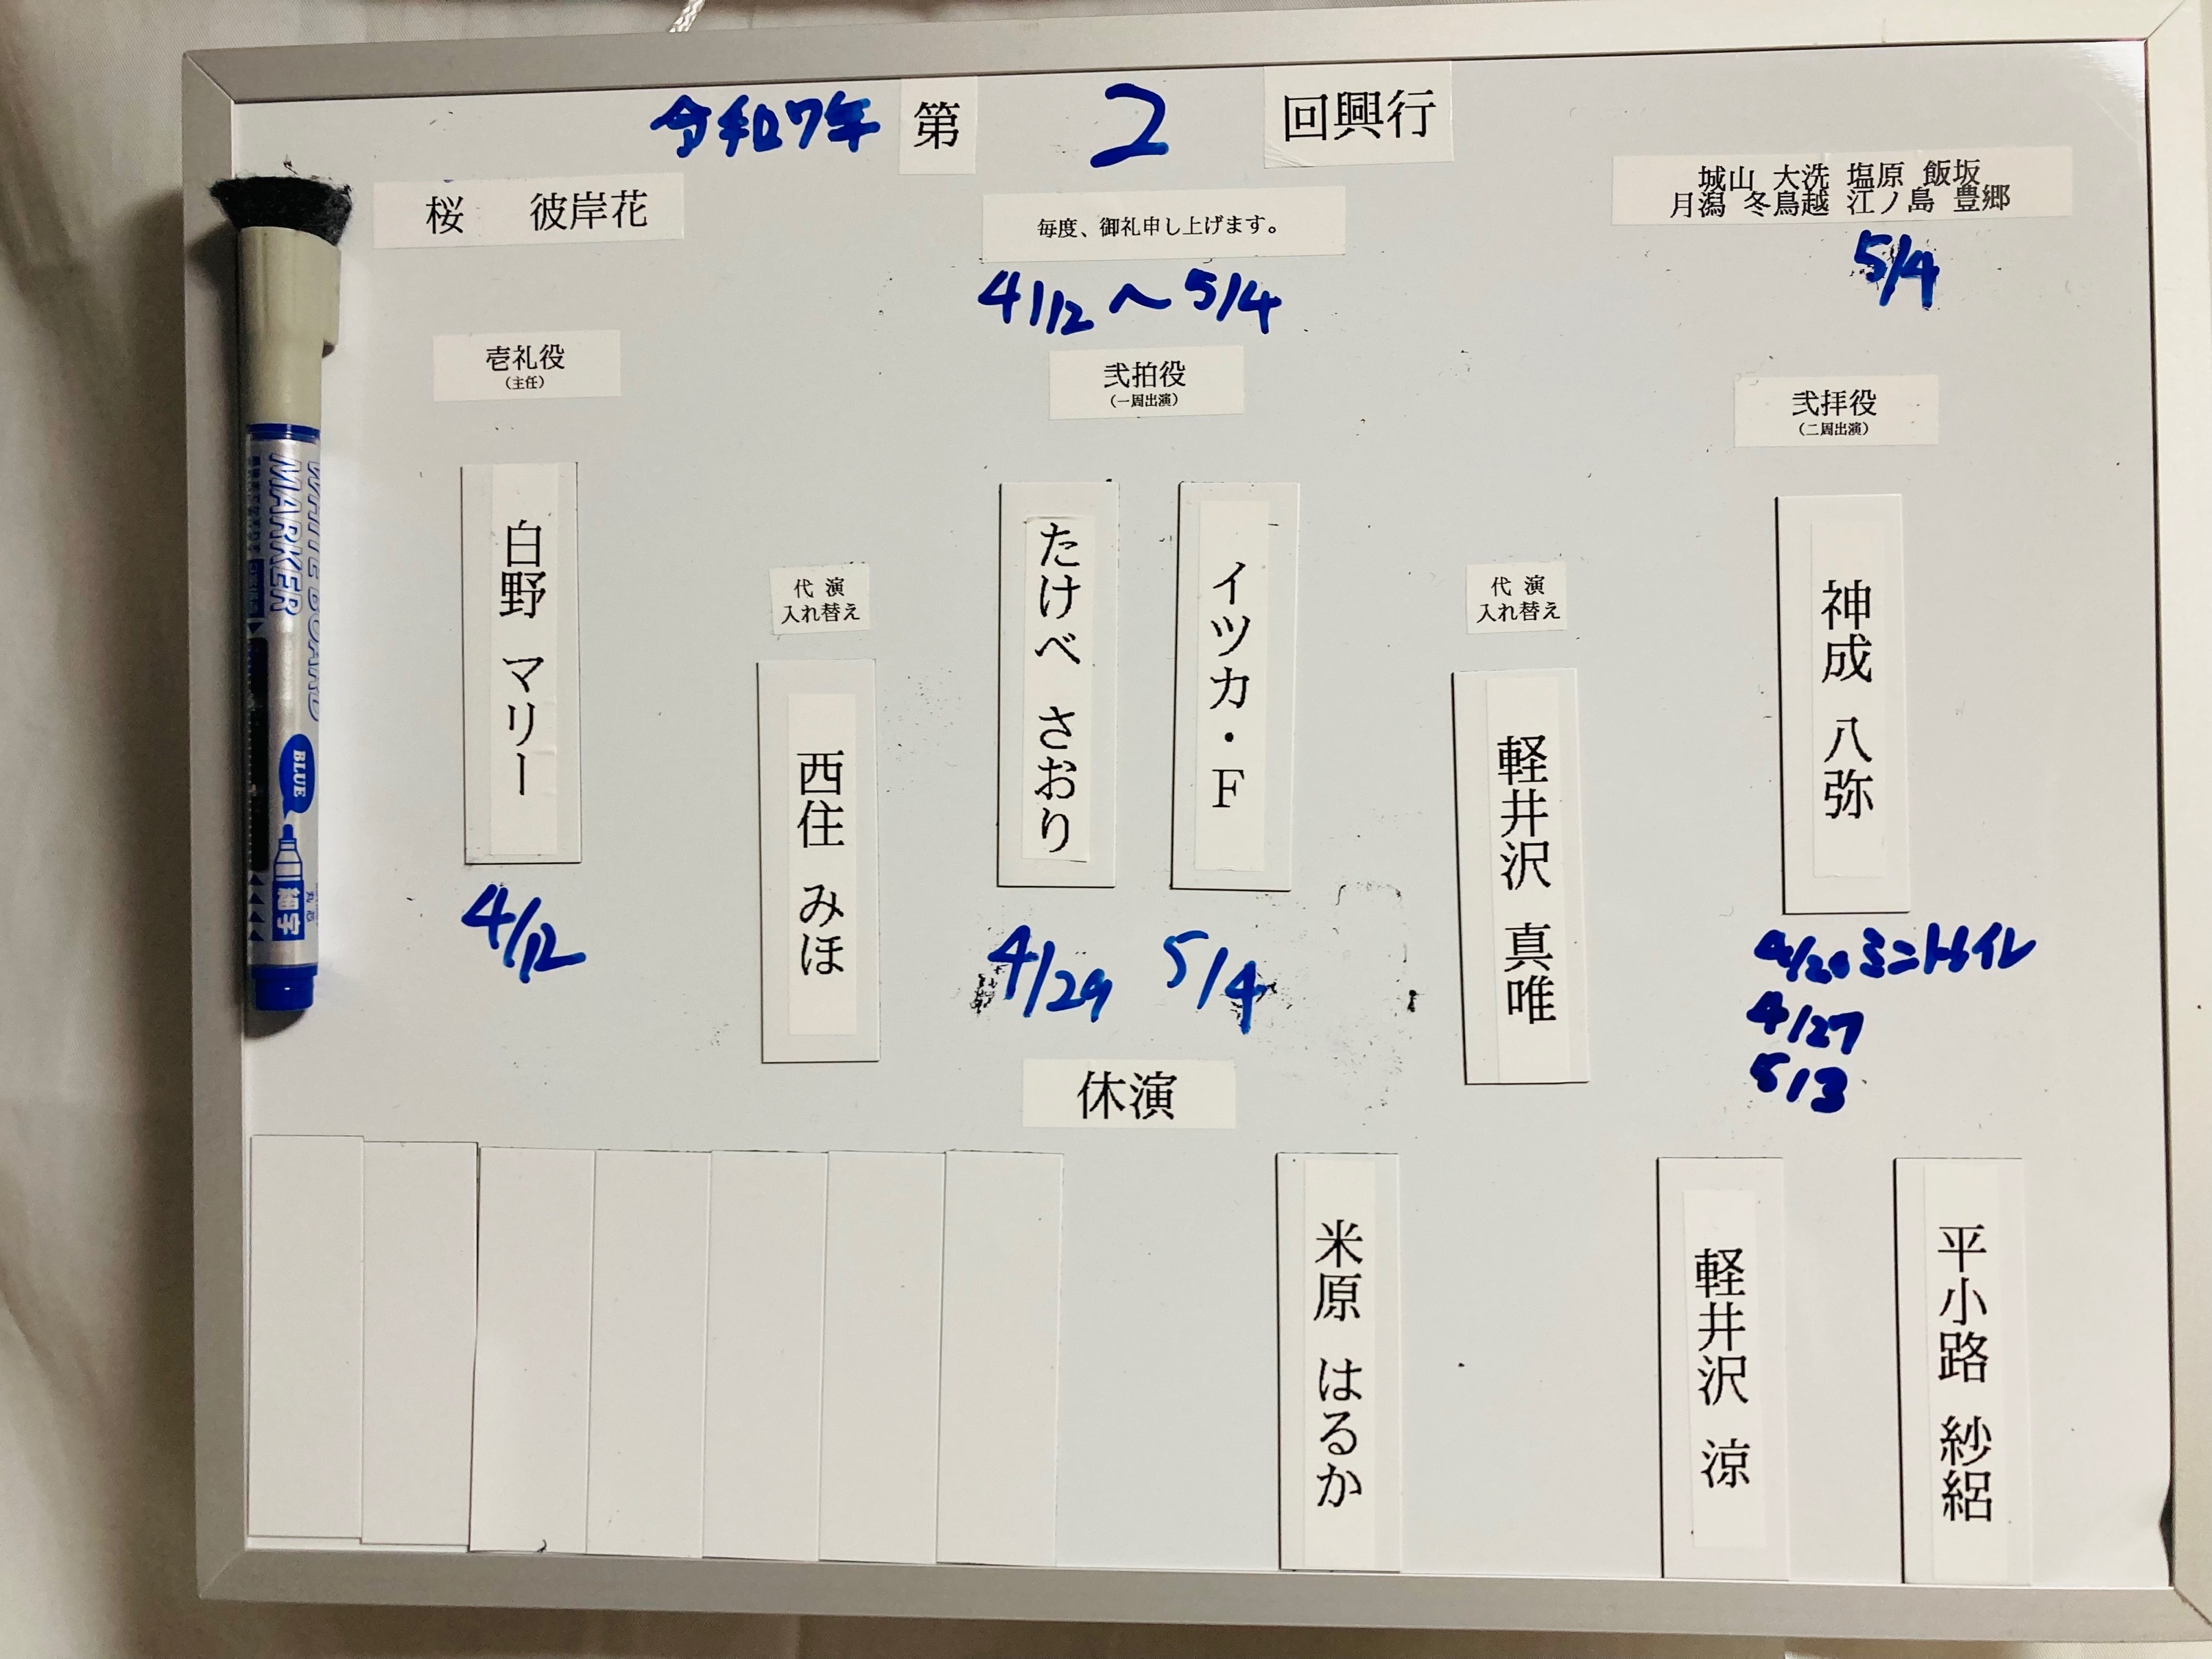 令和7年 第 2 回興行
桜 彼岸花
毎度、御礼申し上げます。
城山 大洗 塩原 飯坂
月潟 冬鳥越 江ノ島 豊郷
4/12 〜 5/4
5/4
壱礼役
（主任）
弐拍役
（一周出演）
弐拝役
（二周出演）
白野 マリー
4/12
代 演
入れ替え
西住 みほ
たけべ さおり
4/29
イツカ・F
5/4
代 演
入れ替え
軽井沢 真唯
神成 八弥
4/20 ミニトレイル
4/27
5/3
休演
米原 はるか
軽井沢 涼
平小路 紗絽
WHITE BOARD
MARKER
BLUE
細字